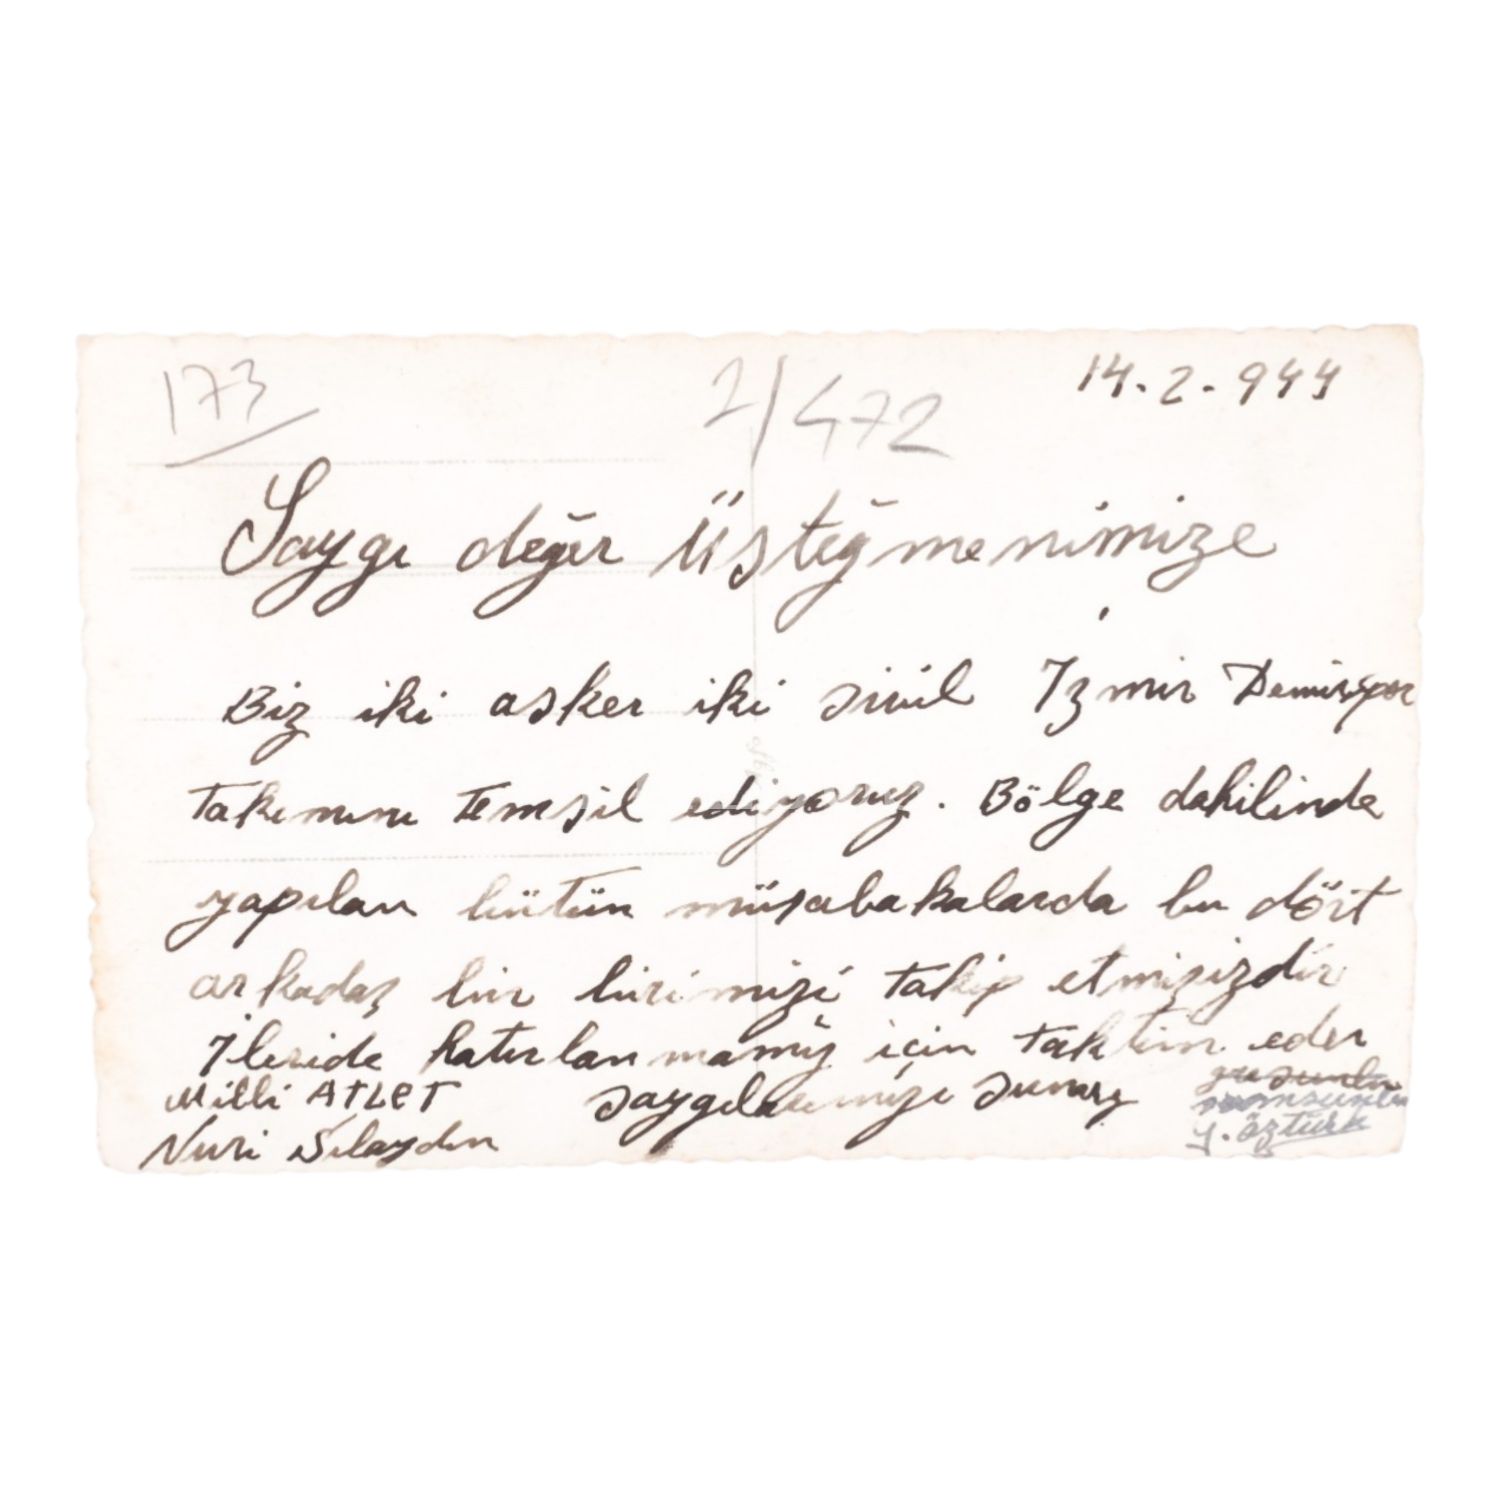 173
2/472
14.2.944
Saygı değer Üsteğmenimize
Biz iki asker iki sivil İzmir Demirspor
Takımını Temsil ediyoruz. Bölge dahilinde
yapılan bütün müsabakalarda bu dört
arkadaş bir birimizi Takip etmişizdir
İleride hatırlanmamız için Taktim eder
Milli ATLET saygılarımızı sunarız
Nuri
y. öztürk